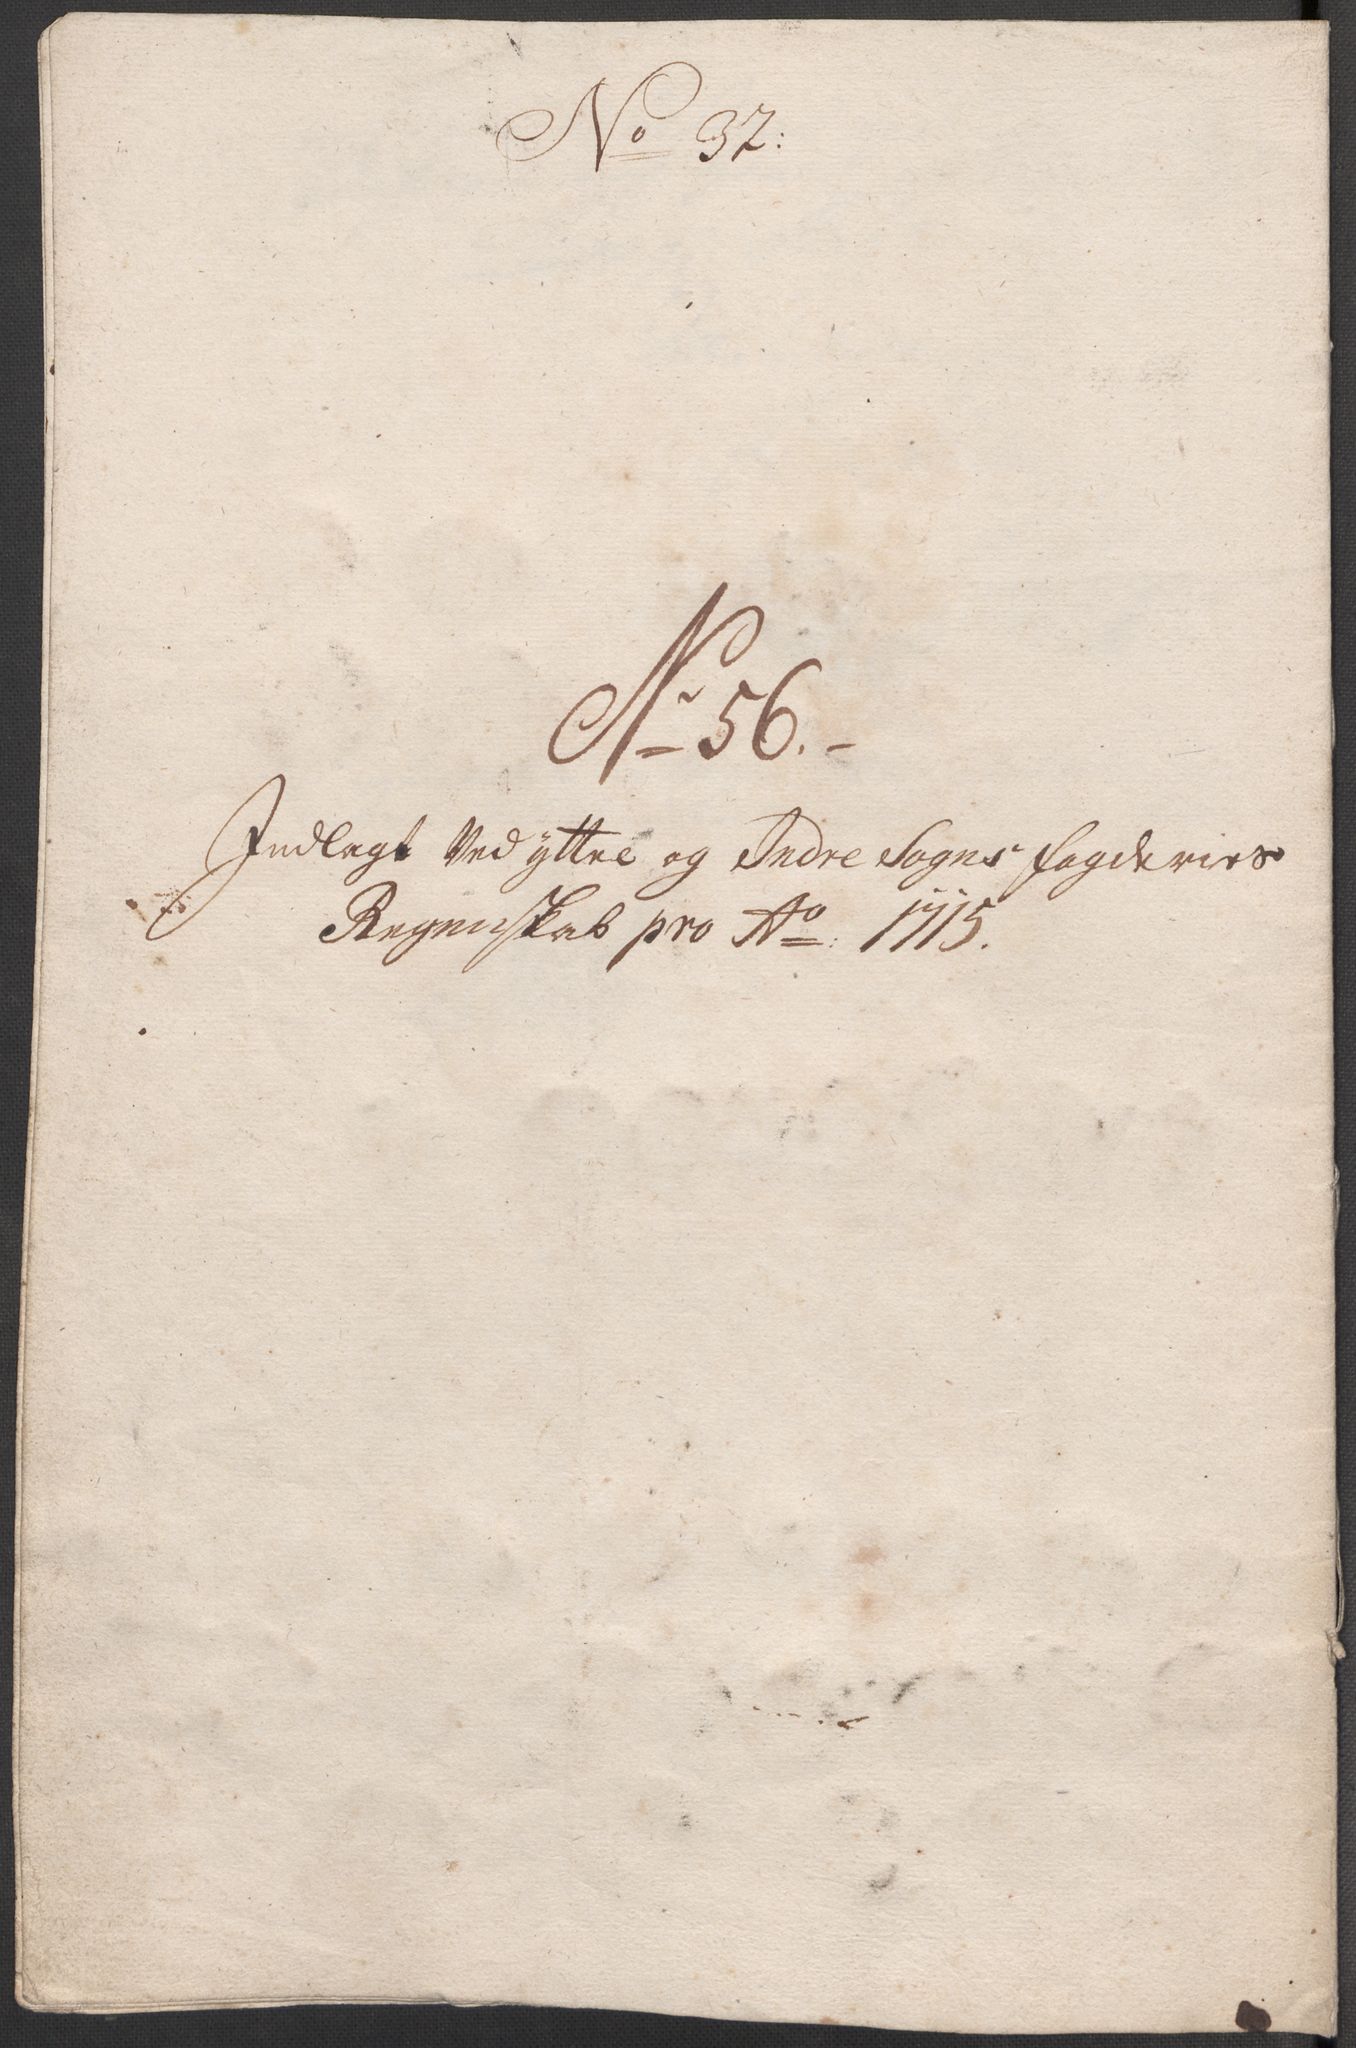 No 32:
No 56.-
Indlagt Ved ÿttre og Indre Sogns fogderies
Regenskab pro Ao: 1715.